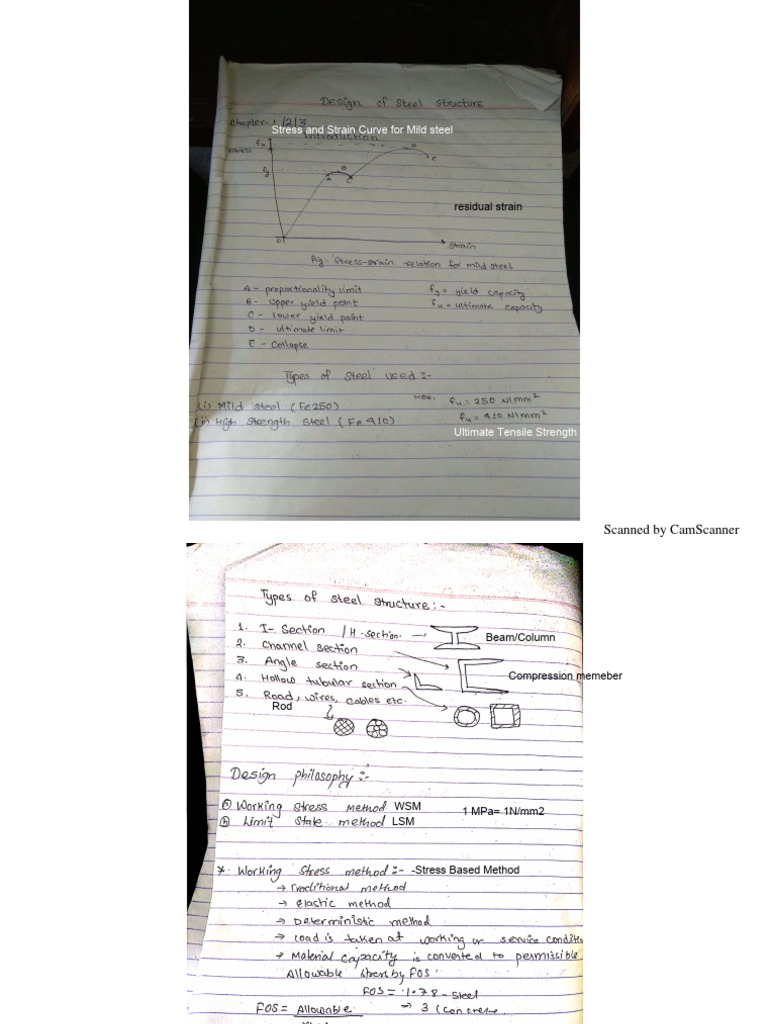 Design of Steel structure
Chapter - 1/2/3
Stress and Strain Curve for Mild steel
Introduction
fu
stress
fy
A
B
C
D
E
residual strain
O
strain
fig:- Stress-strain relation for mild steel
A - proportionality limit
fy = yield capacity
B - Upper yield point
fu = ultimate capacity
C - lower yield point
D - ultimate limit
E - Collapse
Types of Steel used :-
(i) Mild steel (Fe250)
fu = 250 N/mm2
(ii) High Strength Steel (Fe 410)
fu = 410 N/mm2
Ultimate Tensile Strength
Scanned by CamScanner
Types of steel structure:-
1. I- Section / H-section.
Beam/Column
2. Channel section
3. Angle section
Compression memeber
4. Hollow tubular section
5. Road, wires, cables etc.
Rod
Design philosophy:-
(a) Working Stress Method WSM
1 MPa= 1N/mm2
(b) Limit State method LSM
*. Working Stress method:- -Stress Based Method
→ Traditional method
→ elastic method
→ Deterministic method
→ Load is taken at working or service conditio
→ Material capacity is converted to permissible
Allowable stress by FOS.
FOS = 1.78 - Steel
FOS = Allowable
→ 3 (concrete